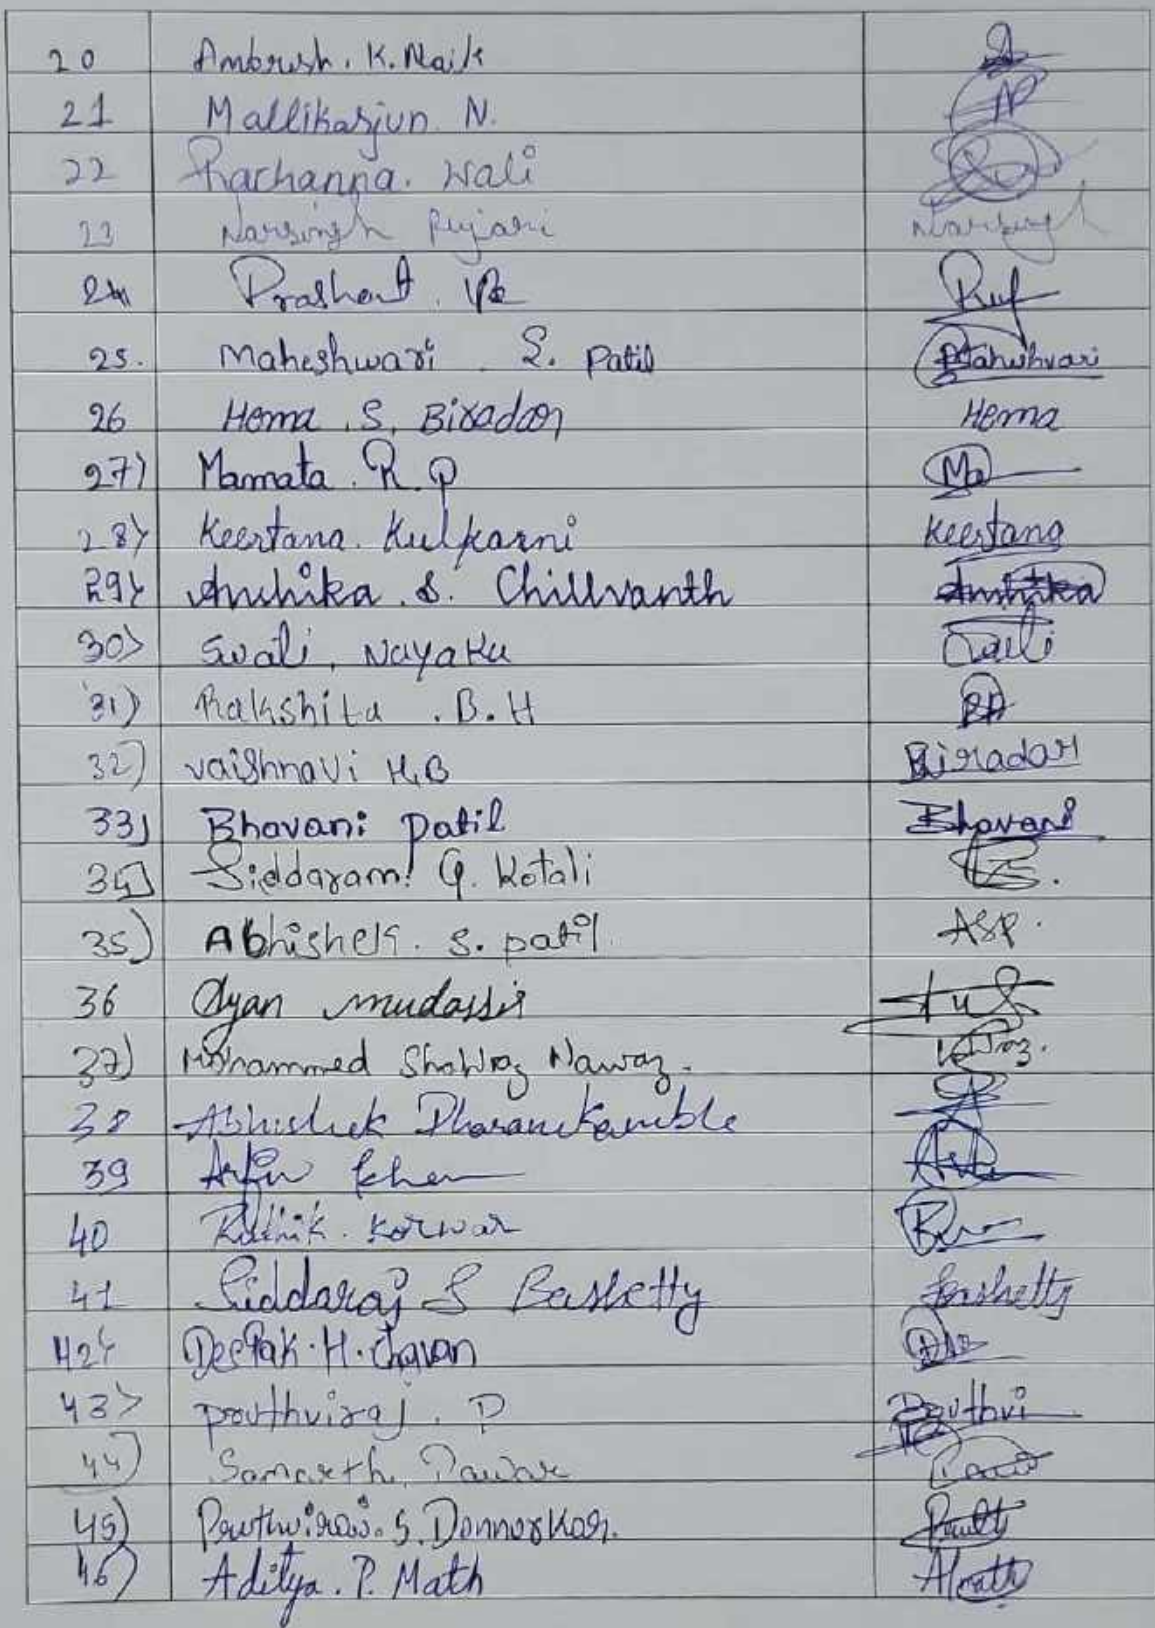 20 Ambrush. K. Naik
21 Mallikarjun. N.
22 Rachanna. Wali
23 Narsingh Pujari Narsingh
24 Prashant.
25. Maheshwari S. Patil
26 Hema S. Biradar Hema
27) Mamata. R. P Ma
28) Keertana. Kulkarni Keertana
29) S. Chillvanth
30) Swati, Nayaku
31) Rakshita . B. H
32) vaishnavi H, B Biradar
33) Bhavani Patil Bhavani
34) Siddaram G. Kotali
35) Abhishek. S. patil. ASP.
36 Ayan mudassir
37) Mohammed Nawaz.
38 Abhishek Dharamkamble
39 Arfin khan
40 Ruthik. Korwar
41 Siddaraj S Bashetty Bashetty
42) Deepak. H. Chavan
43) pruthviraj. P Pruthvi
44) Samarth. Pawar
45) Pruthviraj. S. Donnorkar.
46) Aditya. P. Math AMath